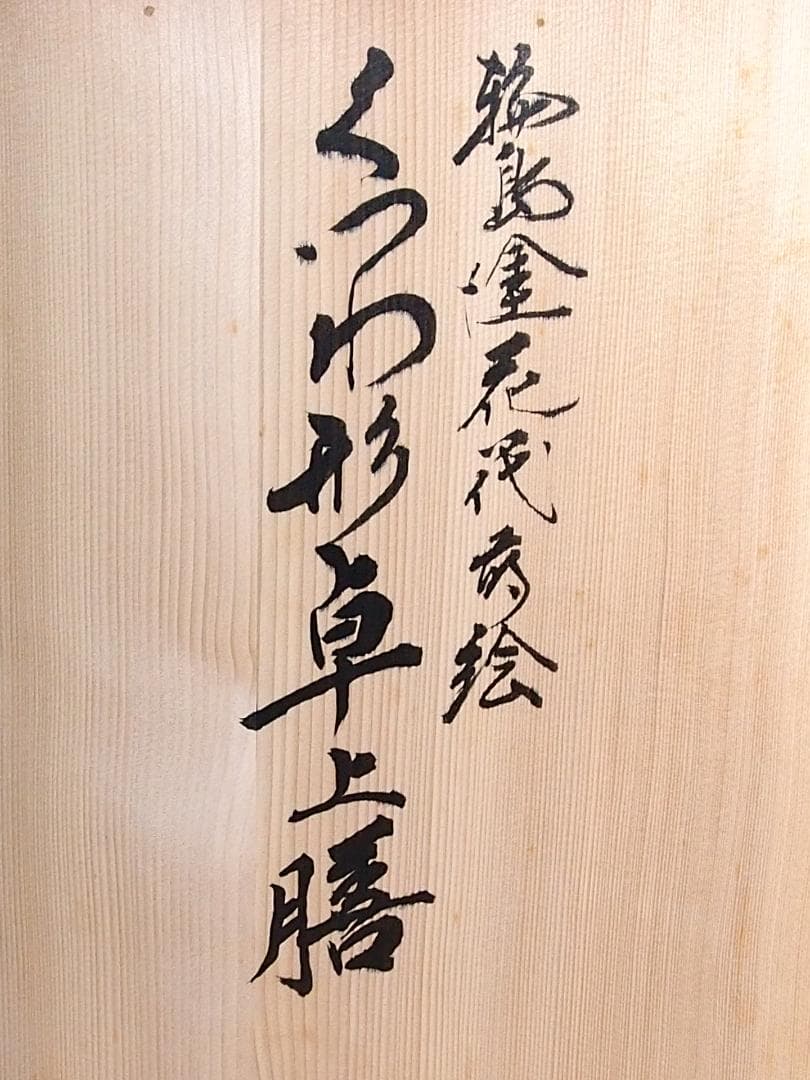 輪島塗花代蒔絵
くつわ形卓上膳